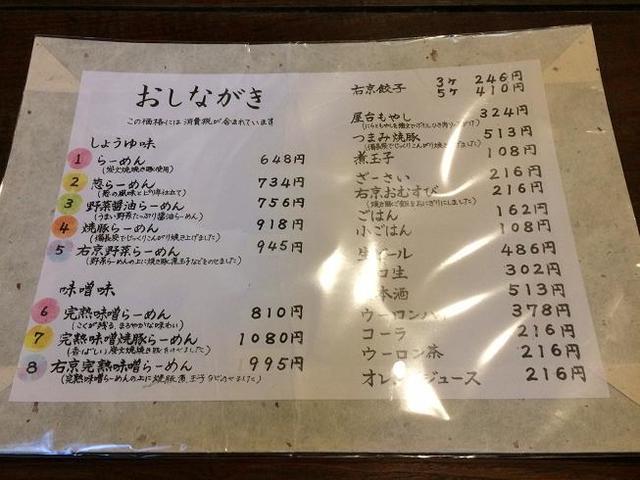 おしながき
この価格には消費税が含まれています
しょうゆ味
1 らーめん 648円
(炭火焼焼き豚使用)
2 葱らーめん 734円
(葱の風味とピリ辛仕立て)
3 野菜醤油らーめん 756円
(うまい野菜たっぷり醤油らーめん)
4 焼豚らーめん 918円
(備長炭でじっくりこんがり焼き上げました)
5 右京野菜らーめん 945円
(野菜らーめんの上に焼き豚煮玉子などをのせました)
味噌味
6 完熟味噌らーめん 810円
(こくが残る、まろやかな味わい)
7 完熟味噌焼豚らーめん 1080円
(香ばしい炭火焼焼き豚をのせました)
8 右京完熟味噌らーめん 995円
(完熟味噌らーめんの上に焼豚煮玉子などのせました)
右京餃子 3ヶ 246円
5ヶ 410円
屋台もやし 324円
つまみ焼豚 513円
(備長炭でじっくりこんがり焼き上げました)
煮玉子 108円
ざーさい 216円
右京おむすび 216円
(焼き豚ご飯をおにぎりにしました)
ごはん 162円
小ごはん 108円
生ビール 486円
コ生 302円
本酒 513円
ウーロンハイ 378円
コーラ 216円
ウーロン茶 216円
オレンジジュース 216円